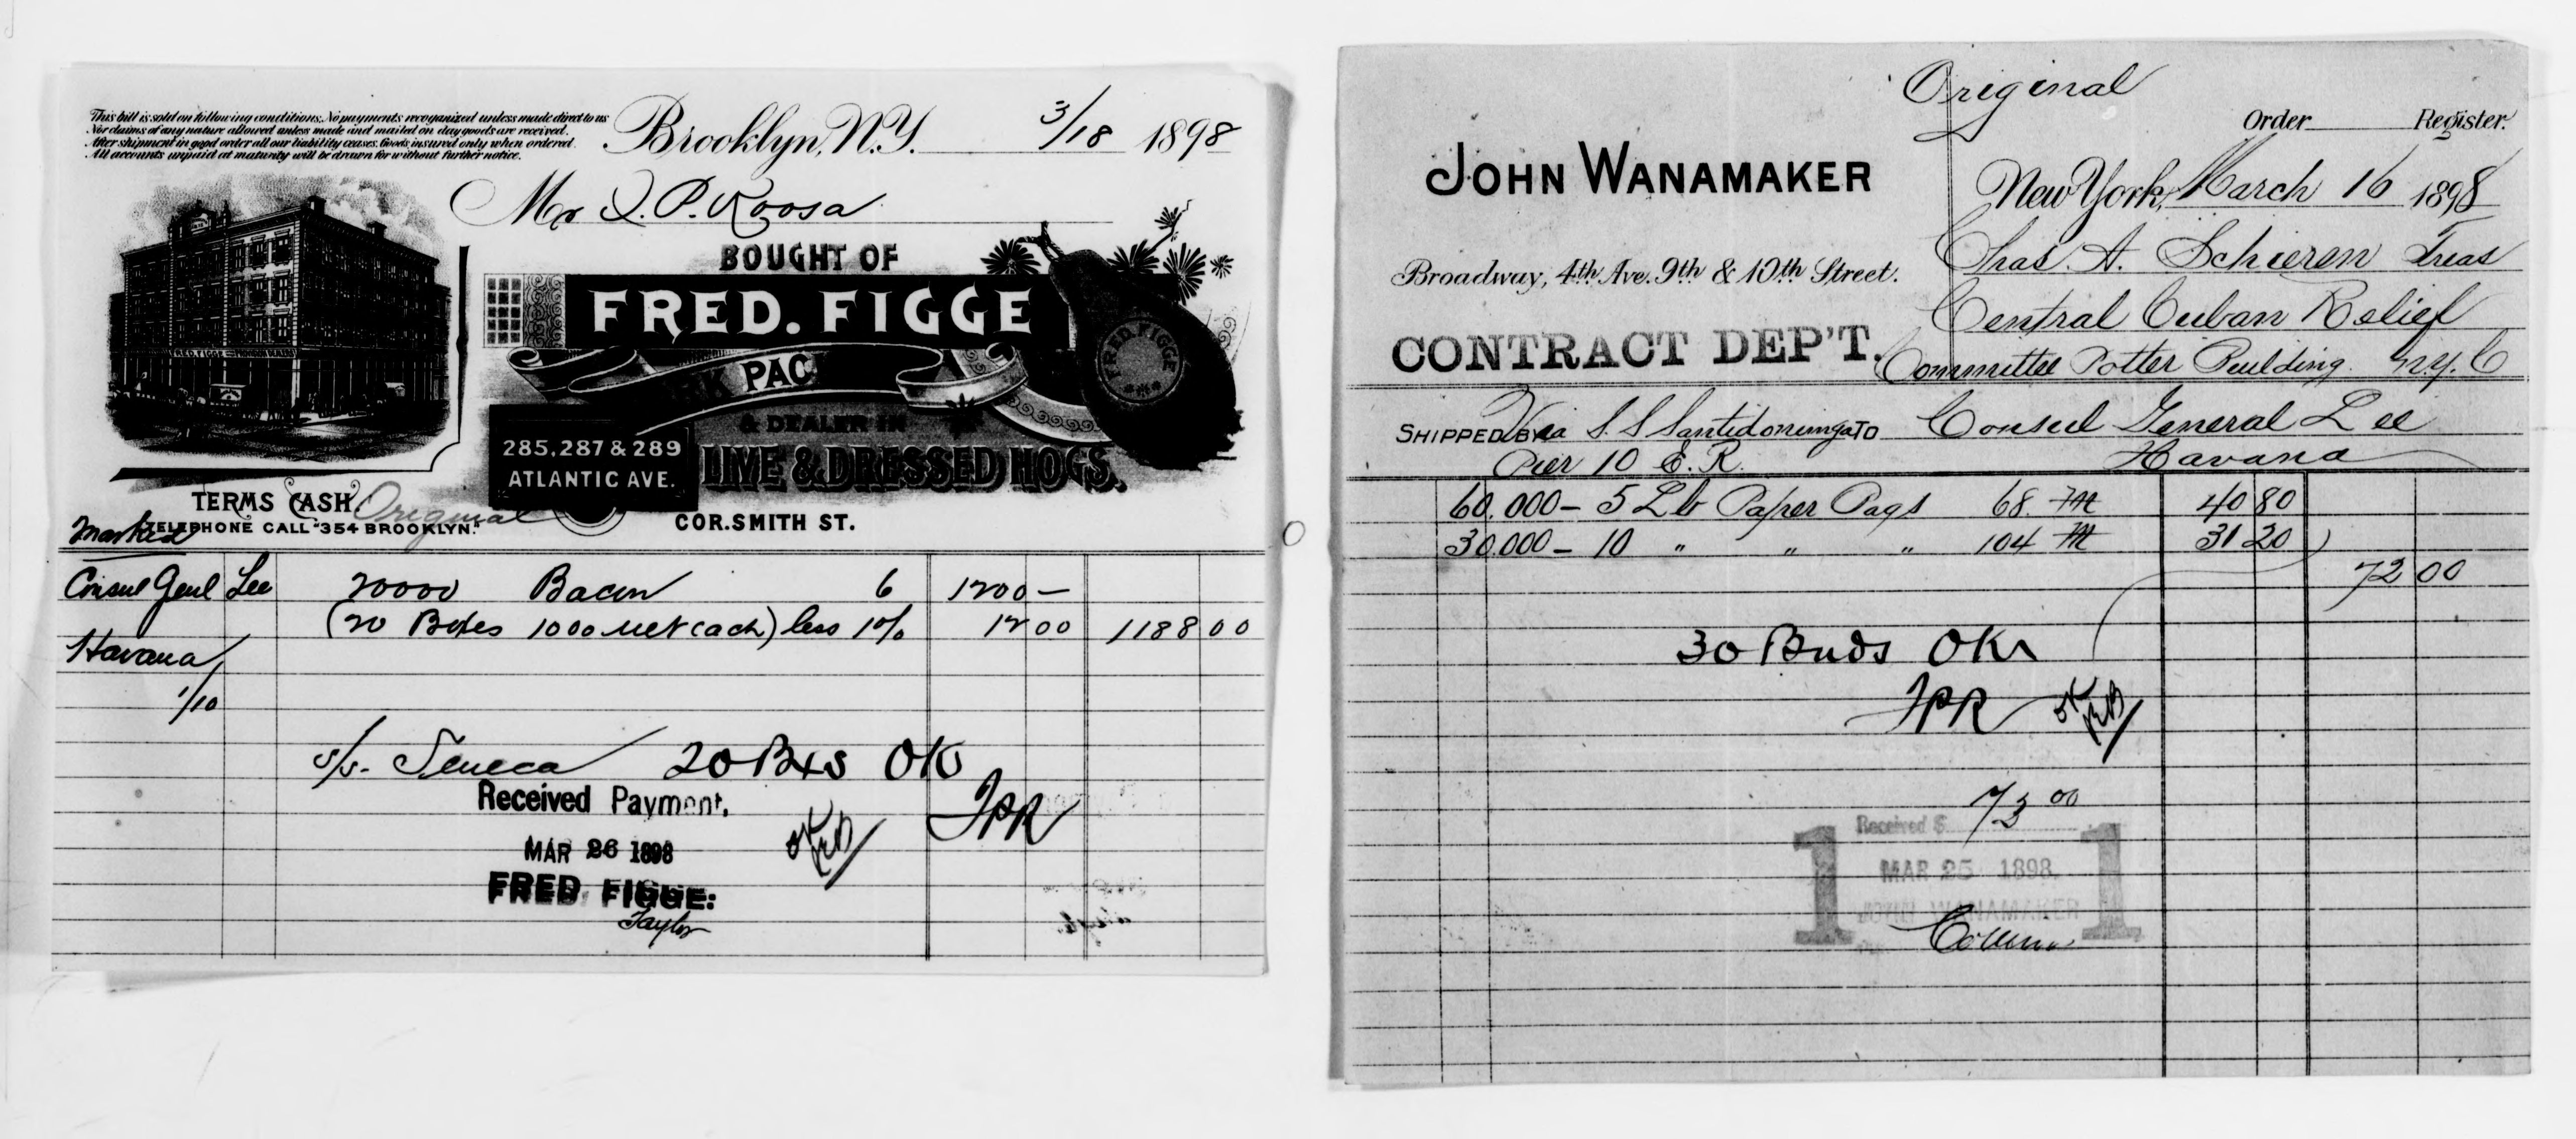 This bill is sold on following conditions. No payments recoganized unless made direct to us
Nor claims of any nature allowed unless made and mailed on day goods are received.
After shipment in good order all our liability ceases. Goods insured only when ordered.
All accounts unpaid at maturity will be drawn for without further notice.
Brooklyn, N.Y. 3/18 1898
Mr J. P. Roosa
BOUGHT OF
FRED. FIGGE
FRED. FIGGE
FRED. FIGGE
RK PAC
& DEALER IN
285, 287 & 289
ATLANTIC AVE.
LIVE & DRESSED HOGS.
COR. SMITH ST.
TERMS CASH. Original
TELEPHONE CALL "354 BROOKLYN."
Marked
Consul Genl Lee 20000 Bacon 6 1200 —
(20 Boxes 1000 net each) less 1% 12 00 1188 00
Havana
1/10
s/s. Seneca 20 Bxs OK
JPR
Received Payment,
OK
MAR 26 1898
FRED. FIGGE:
Taylor
Original
Order Register.
JOHN WANAMAKER
New York, March 16 1898
Broadway, 4th Ave. 9th & 10th Street.
Chas. A. Schieren Treas
Central Cuban Relief
CONTRACT DEP'T.
Committee Potter Building N.Y.C
SHIPPED BY Via S. S Santidomingo TO Consul General Lee
Pier 10 E. R. Havana
60.000 – 5 Lb Paper Bags 68. M 40 80
30.000 – 10 " " " 104 M 31 20
72 00
30 Buds OK
JPR OK
72 00
Received $
1 MAR 25 1898. 1
JOHN WANAMAKER